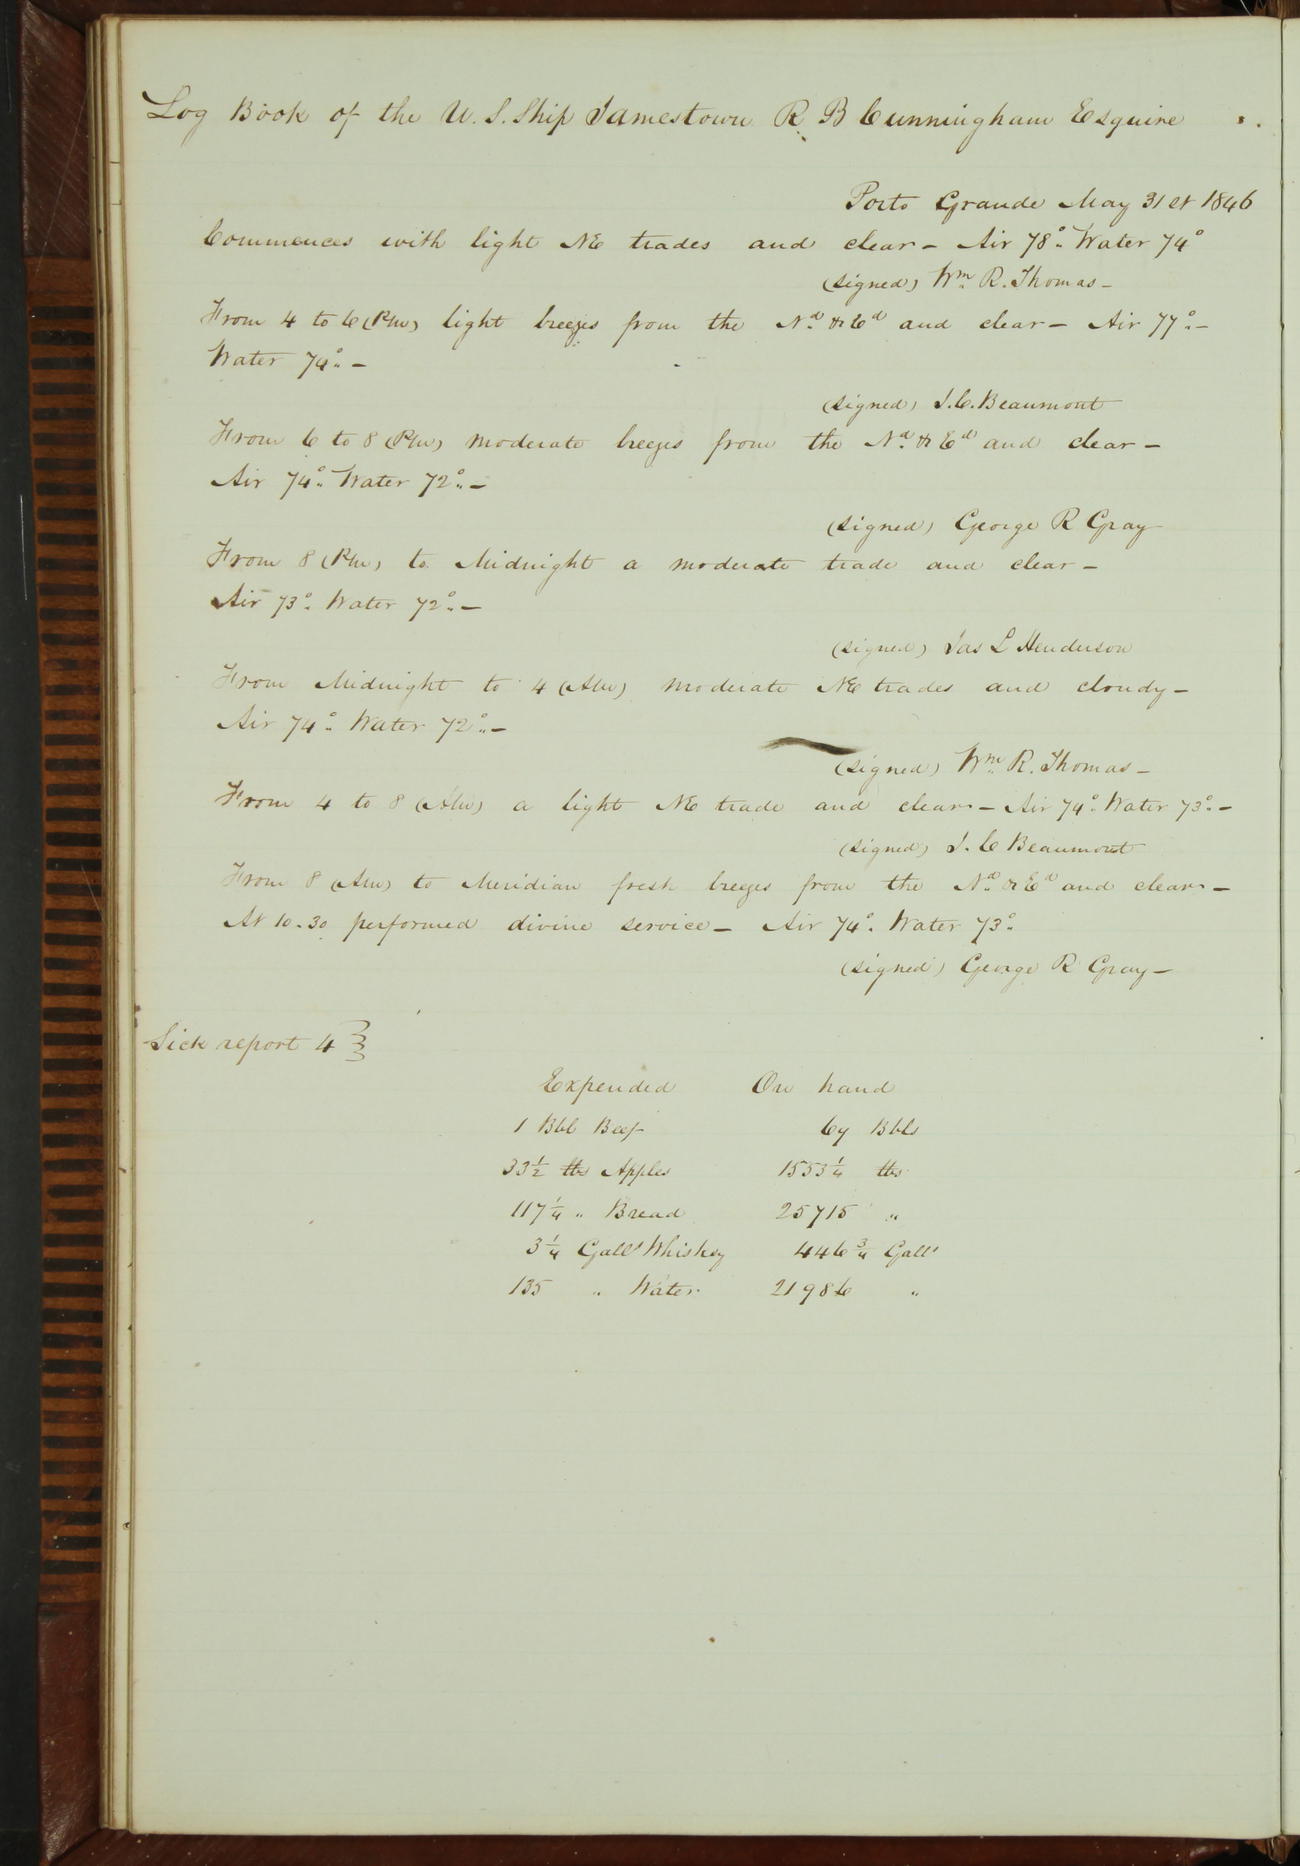 Log Book of the U. S. Ship Jamestown R B Cunningham Esquire
Porto Grande May 31st 1846
Commences with light NE trades and clear – Air 78° Water 74°
(signed) Wm R. Thomas –
From 4 to 6 (PM) light breezes from the Nd & Ed and clear – Air 77° –
Water 74° –
(signed) J. C. Beaumont
From 6 to 8 (PM) moderate breezes from the Nd & Ed and clear –
Air 74° Water 72° –
(signed) George R Gray
From 8 (PM) to Midnight a moderate trade and clear –
Air 73° Water 72° –
(signed) Jas L Henderson
From Midnight to 4 (AM) moderate NE trades and cloudy –
Air 74° Water 72° –
(signed) Wm R. Thomas –
From 4 to 8 (AM) a light NE trade and clear – Air 74° Water 73° –
(signed) J. C Beaumont
From 8 (AM) to Meridian fresh breezes from the Nd & Ed and clear –
At 10.30 performed divine service – Air 74° Water 73°
(signed) George R Gray –
Sick report 4
Expended On hand
1 Bbl Beef 67 Bbls
33½ lbs Apples 1553¼ lbs
117¼ " Bread 25715 "
3¼ Galls Whiskey 446¾ Galls
135 " Water 21986 "